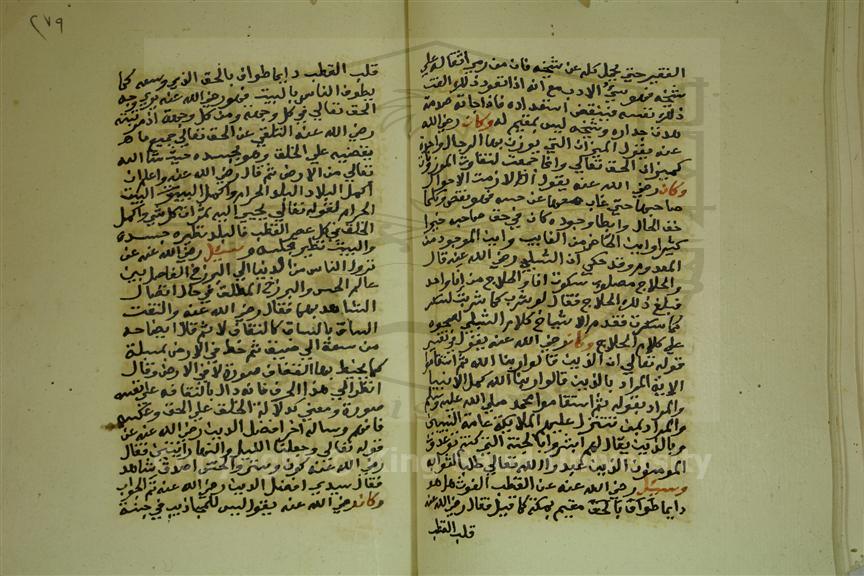 الفقير حتى يحمل كله عن شيخه فان من رمى اثقاله على
شيخه فهو سيئ الادب مع انه اذا تعود ذلك والفت
ذلك نفسه فينقص استعداده فاذا جاته صدمة
هدت جداره وشيخه ليس بمقيم له وكان رضي الله
عنه يقول الميزان التي يوزن بها الرجال واحدة
كميزان الحق تعالى وانما جمعت لتفاوت الموزون
وكان رضي الله عنه يقول اذا لازمت الاحوال
صاحبها حتى غاب عن حسه فهو نقص وكلما
خف الحال وابطا وجوده كان في حق صاحبه خيرا
كثيرا واين الحاضر من الغايب واين الموجود من
المعدوم وقد حكي ان الشبلي رضي الله عنه قال
والحلاج مصلوب سكرت انا والحلاج من اناء واحد
فبلغ ذلك الحلاج فقال لو شرب كما شربت لسكر
كما سكرت فقدم الاشياخ كلام الشبلي لصحوه
على كلام الحلاج وكان رضي الله عنه يقول في تفسير
قوله تعالى ان الذين قالوا ربنا الله ثم استقاموا
الاية المراد بالذين قالوا ربنا الله كمل الانبيا
والمراد بقوله ثم استقاموا محمد صلى الله عليه وسلم
والمراد بمن تتنزل عليهم الملايكة عامة النبيين
وبالذين يقال لهم ابشروا بالجنة التي كنتم توعدون
المومنون الذين عبدوا الله تعالى طلب الثواب
وسئل رضي الله عنه عن القطب الغوث هل هو
دايما طواف بالحق مقيم بمكة كما قيل فقال رضي الله عنه
قلب القطب
٢٧٩
قلب القطب دايما طواف بالحق الذي وسعه كما
يطوف الناس بالبيت فهو رضي الله عنه يرى وجه
الحق تعالى في كل وجهة ومن كل وجهة اذ مرتبته
رضي الله عنه التلقي عن الحق تعالى جميع ما هو
يفضيه على الخلق وهو بجسده حيث شا الله
تعالى من الارض ثم قال رضي الله عنه واعلم ان
اكمل البلاد البلد الحرام واكمل البيوت البيت
الحرام لقوله تعالى يجبى اليه ثمرات كل شي واكمل
الخلق في كل عصر القطب فالبلد نظيره جسده
والبيت نظير قلبه وسئل رضي الله عنه عن
نزول الناس من الدنيا الى البرزخ الفاصل بين
عالم الحس والبرزخ المطلق في حال انفصال
النشا بعد بها فقال رضي الله عنه والتفت
الساق بالساق كالتفاف لا ثم قال ايضاحه
من سعة الى ضيق ثم خط في الارض بمسلة
كما يخيط بها القفاف صورة لا في الارض وقال
انظر الى هذا الحرف فانه دال بالتفافه على نفسه
صورة ومعنى كدلالة الخلق على الحق وعكسه
فافهم وساله اخي افضل الدين رضي الله عنه عن
قوله تعالى وجعلنا الليل والنهار آيتين فقال
رضي الله عنه كون ومتر والجنة اصدق شاهد
فقال سيدي افضل الدين رضي الله عنه تم الجواب
وكان رضي الله عنه يقول ليس للمجاذيب في جنة